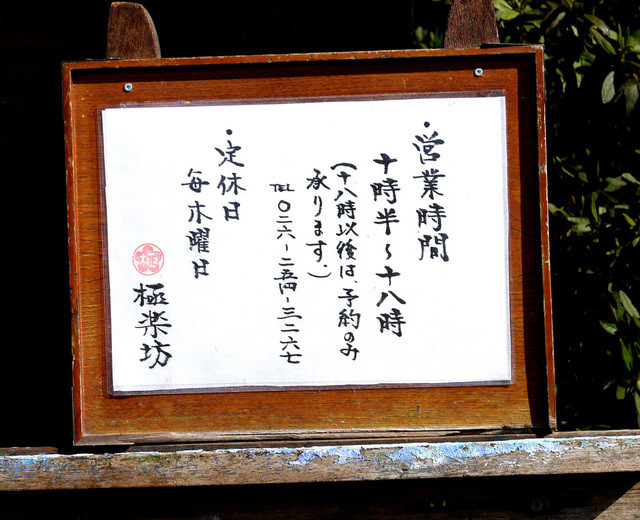 ・営業時間
十時半〜十八時
(十八時以後は、予約のみ
承ります。)
TEL 〇二六-二五四-三二六七
・定休日
毎木曜日
極
極楽坊